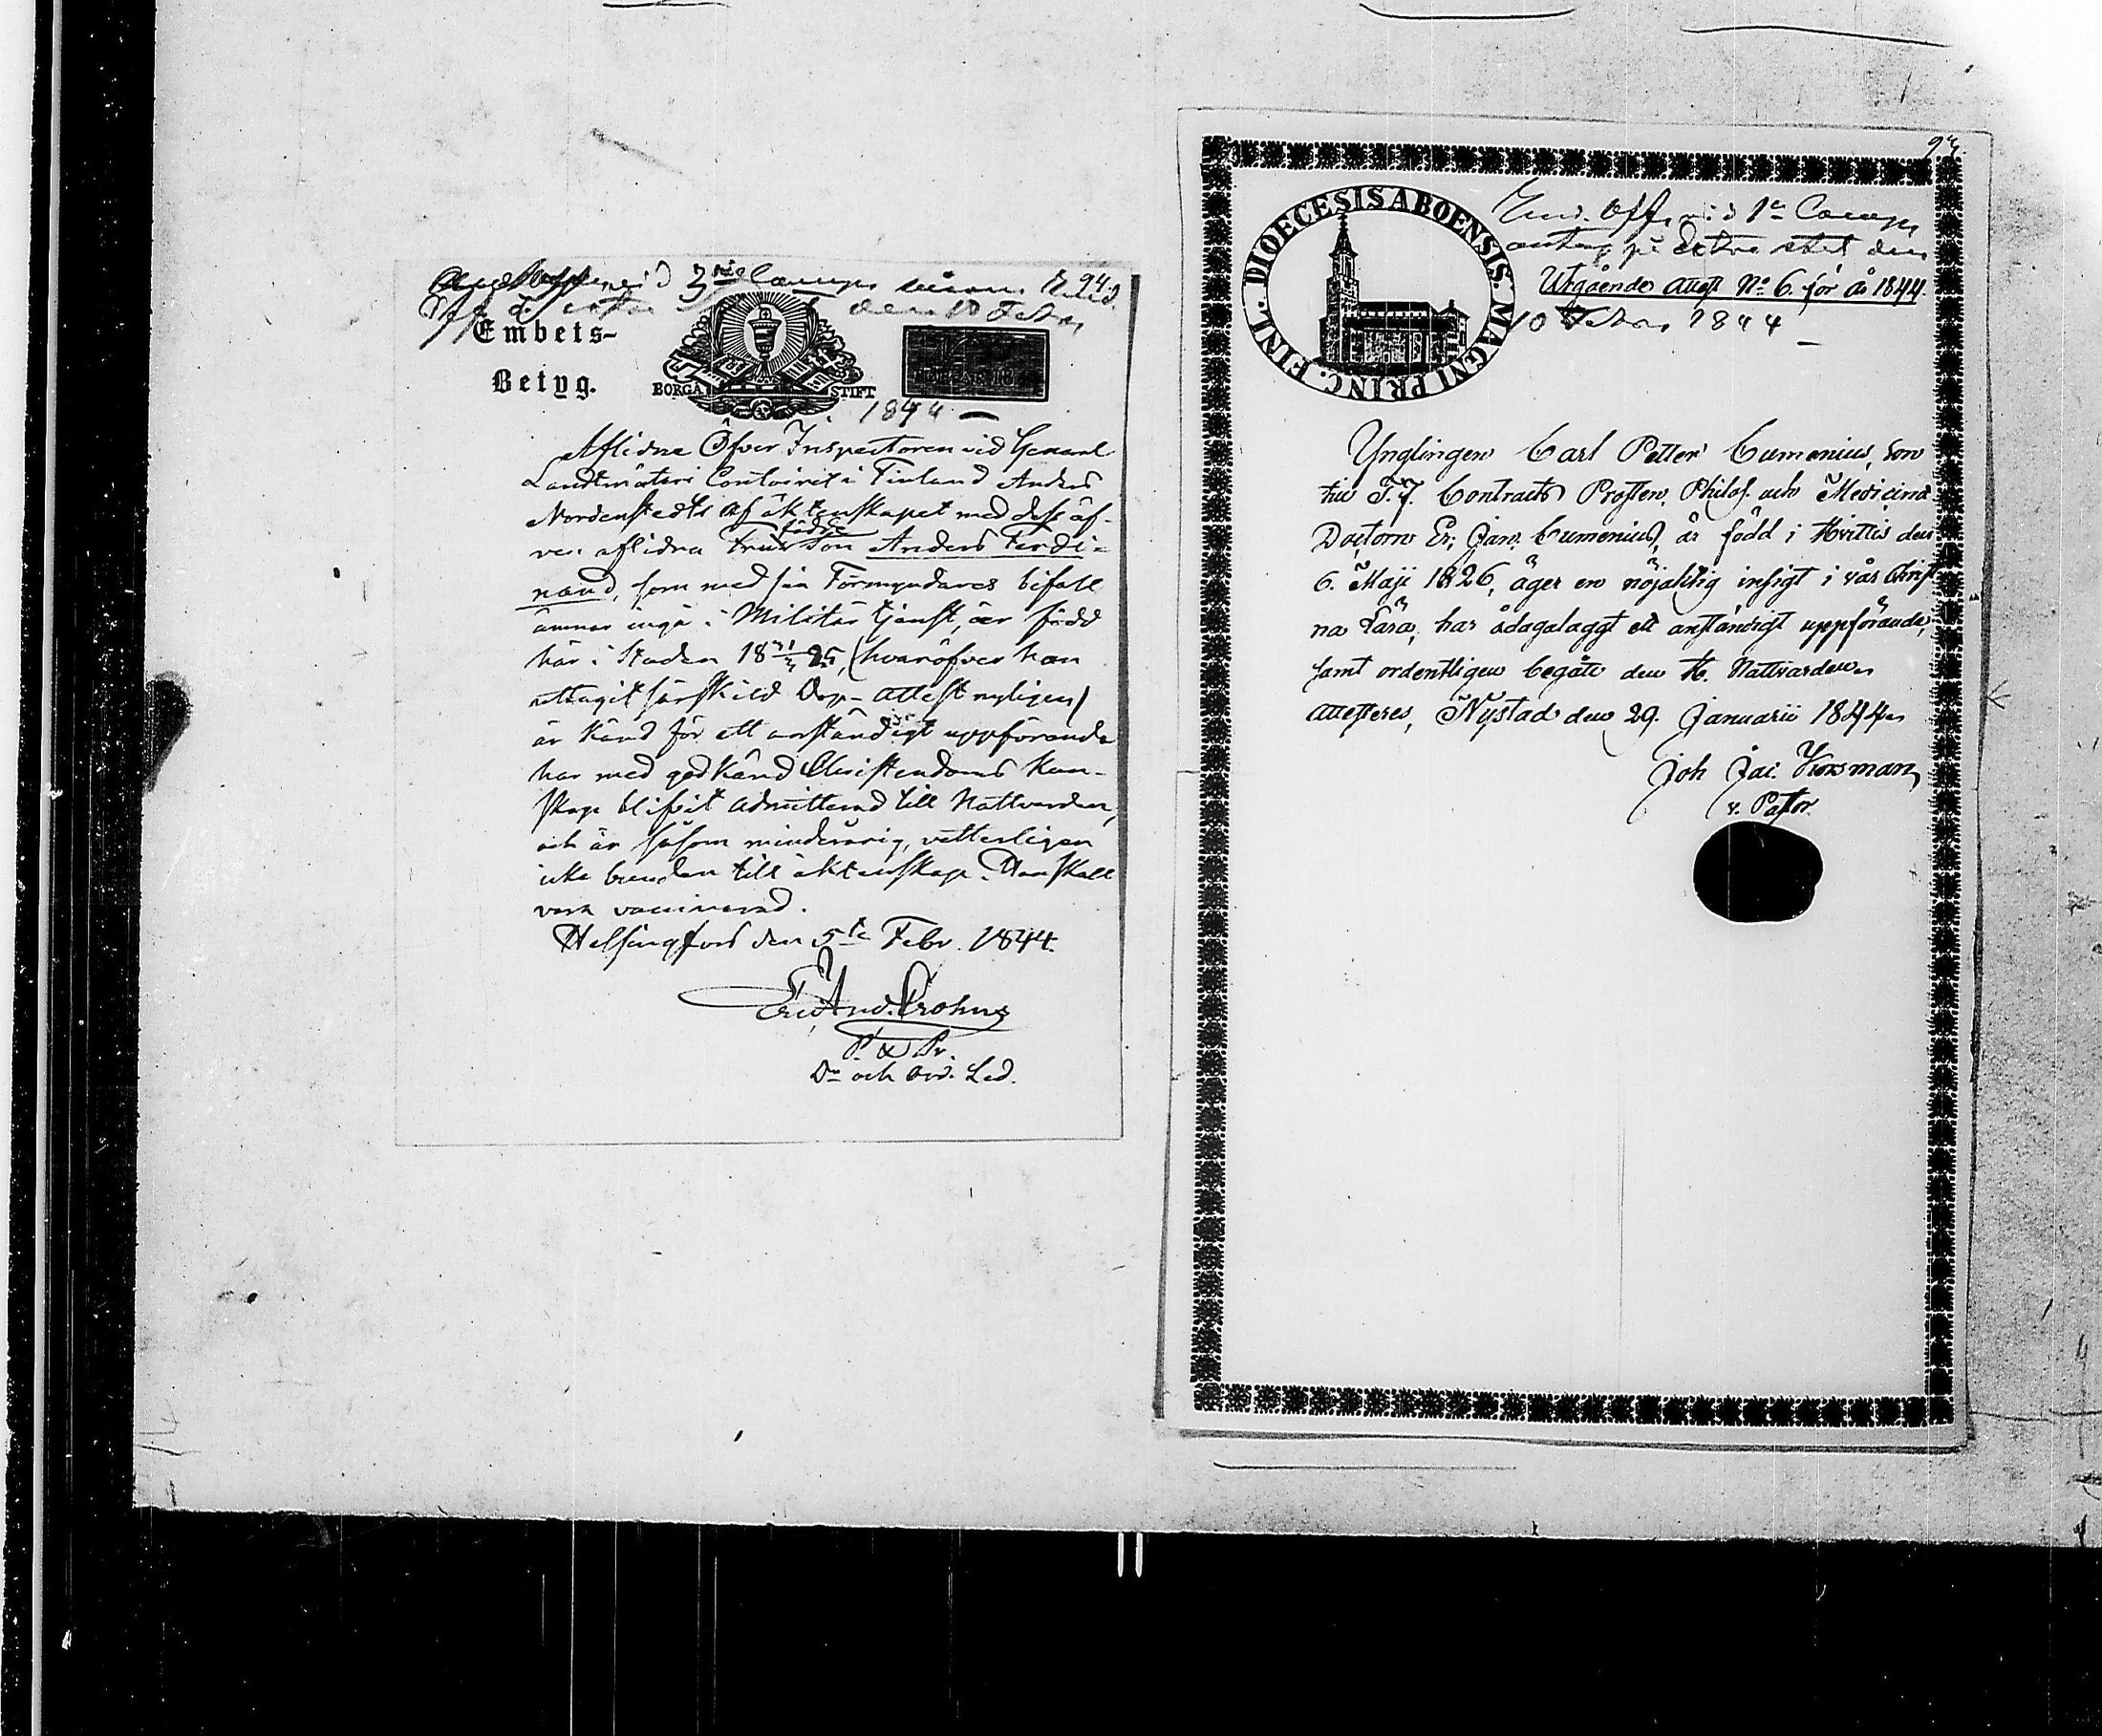 3die Comp.
94
den 10 Febr.
Embets-
Betyg.
BORGÅ STIFT
1844
Aflidne Öfver Inspectoren vid General
Landtmäteri Contoiret i Finland Anders
Nordenstedts af äktenskapet med dess äf-
ven aflidna Fru födde Son Anders Ferdi-
nand, som med sin Förmyndares bifall
ämnar ingå i Militär tjenst, är född
här i Staden 18 25, (hvaröfver han
uttagit särskild Dop-attest nyligen)
är känd för ett anständigt uppförande
har med godkänd Christendoms kun-
skap blifvit admitterad till Nattvarden,
och är såsom minderårig, vetterligen
icke bunden till äktenskap. Han skall
vara vaccinerad.
Helsingfors den 5te Febr. 1844.
And. Crohns
P. & Pr.
Dr och Ord. Led.
FINL. DIOECESIS ABOENSIS. MAGNI PRINC.
vid 1a Comp.
antag. på Extra stat den
Utgående Attest No 6. för år 1844.
10 Febr. 1844
Ynglingen Carl Petter Cumenius, son
till F. J. Contracts Prosten, Philos. och Medicinæ
Doctorn Er. Jan. Cumenius, är född i Hvittis den
6. Maji 1826, äger en nöjaktig insigt i vår Christ
na Lära, har ådagalaggt ett anständigt uppförande,
samt ordentligen begått den H. Nattvarden
attesteres, Nystad den 29. Januarii 1844.
Joh Jac.
v. Pastor.